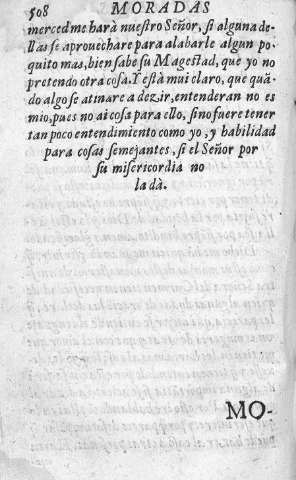 508 MORADAS
merced me harà nuestro Señor, si alguna de-
llas se aprouechare para alabarle algun po-
quito mas, bien sabe su Magestad, que yo no
pretendo otra cosa. Y està mui claro, que quā-
do algo se atinare a dezir, entenderan no es
mio, pues no ai cosa para ello, sino fuere tener
tan poco entendimiento como yo, y habilidad
para cosas semejantes, si el Señor por
su misericordia no
la da.
MO-